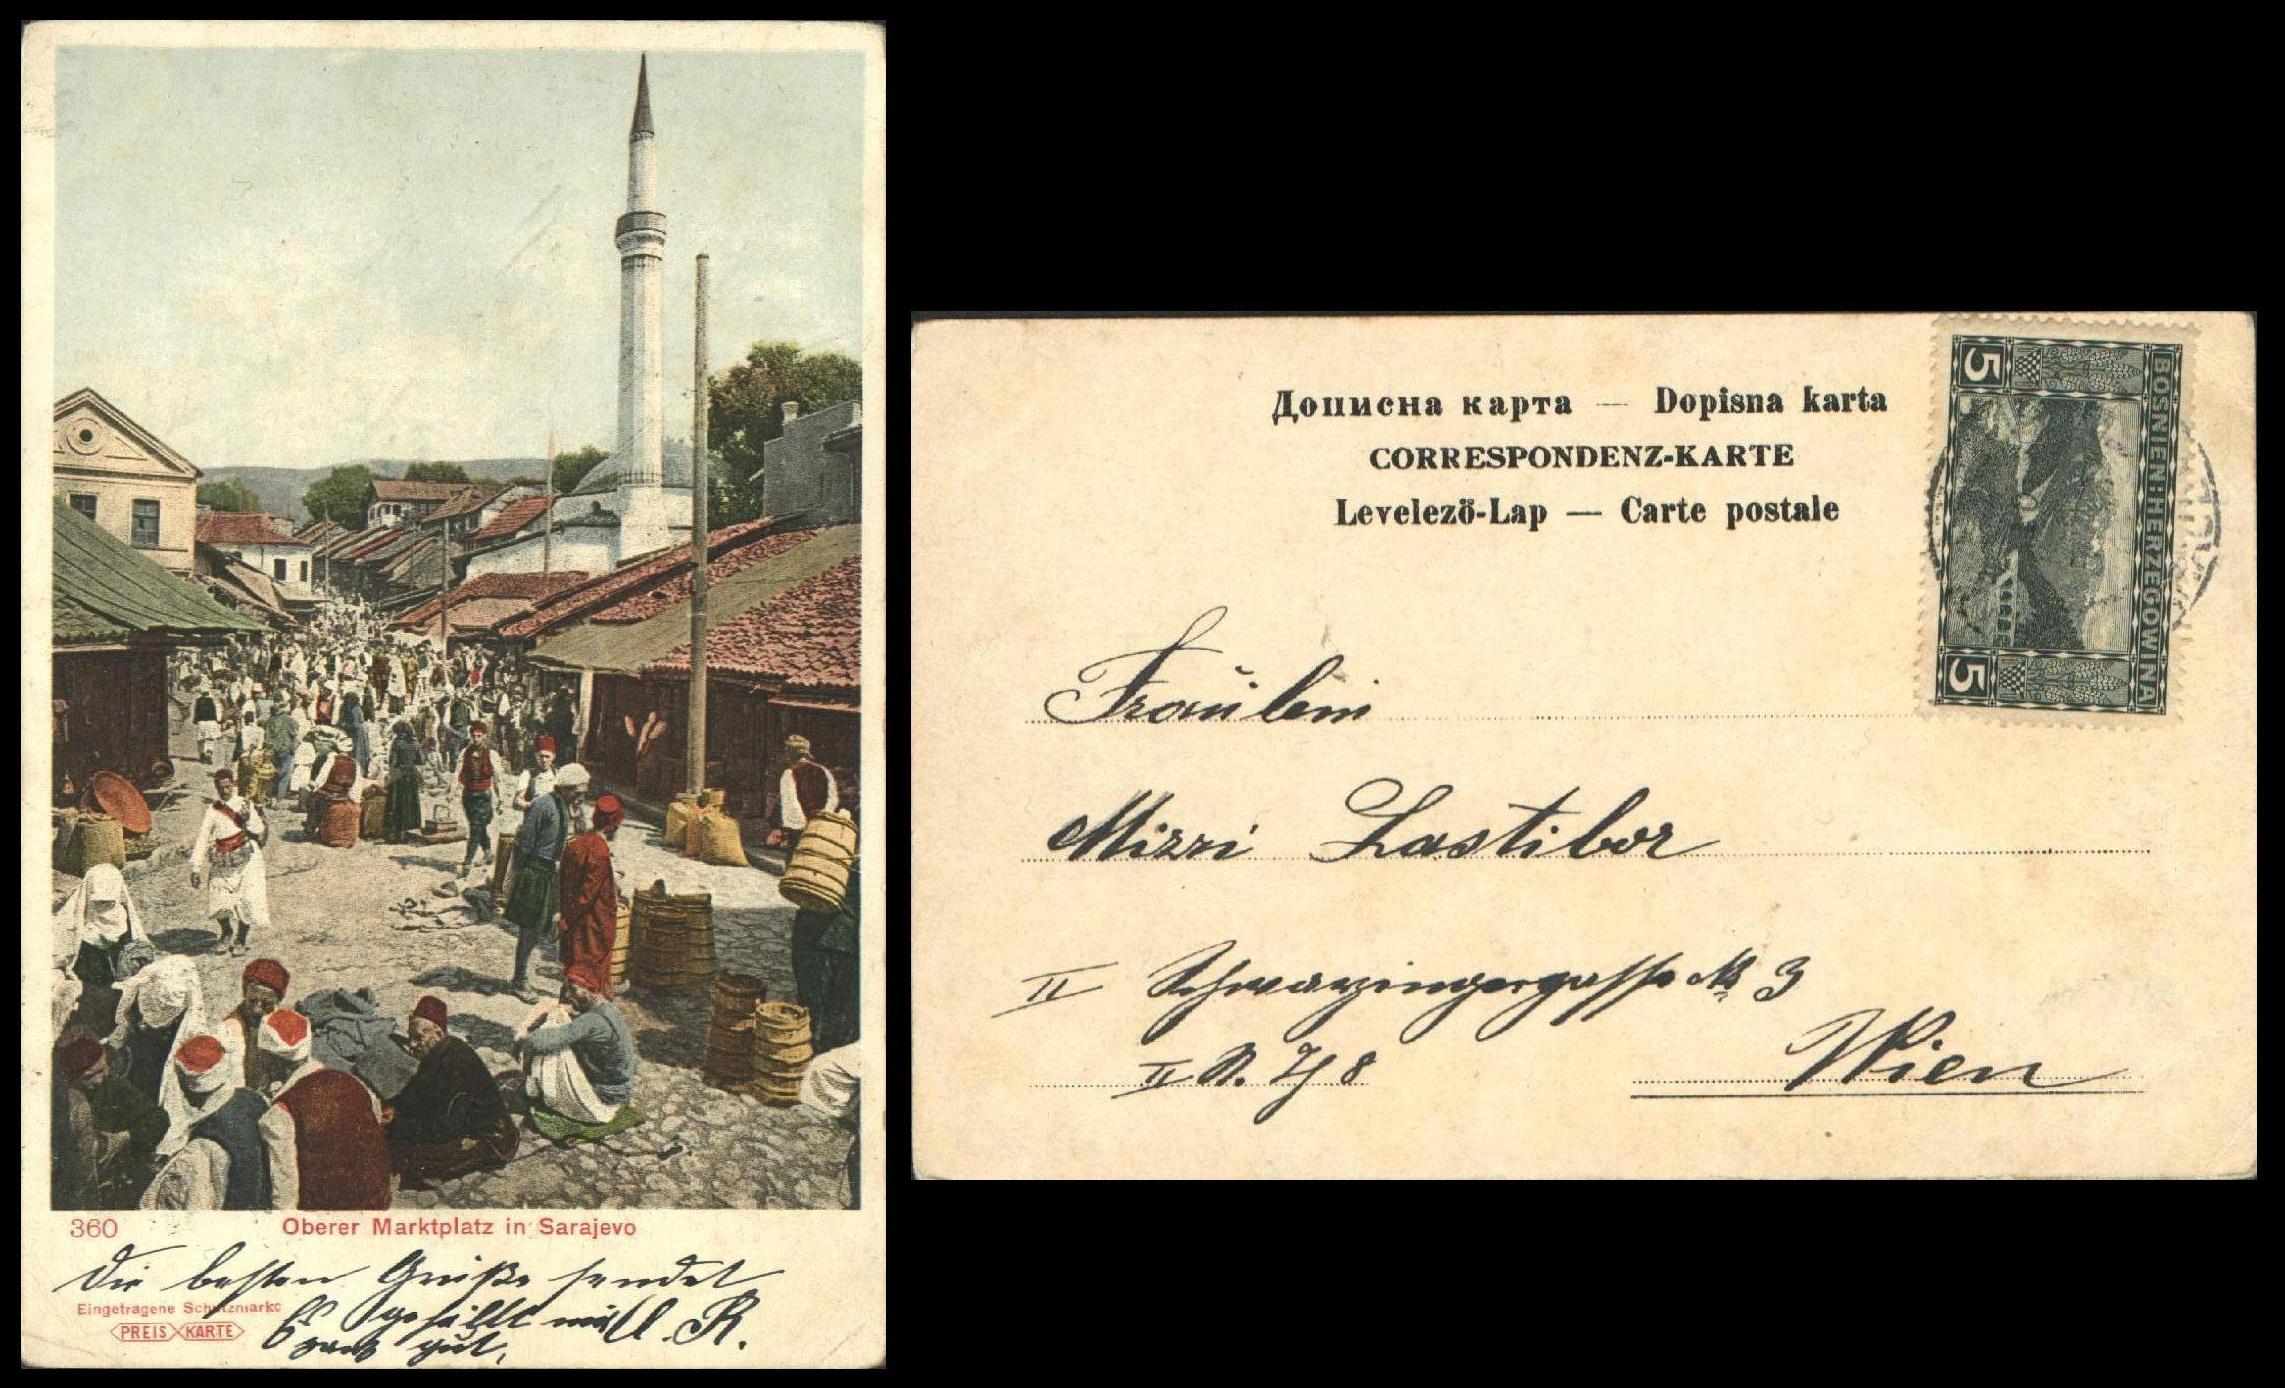 360 Oberer Marktplatz in Sarajevo
Die besten Grüße sendet
Eingetragene Schutzmarke
Es gefällt mir
PREIS KARTE
ganz gut. R.
Дописна карта — Dopisna karta
CORRESPONDENZ-KARTE
Levelező-Lap — Carte postale
5 BOSNIEN-HERZEGOWINA 5
Fräulein
Mizzi Lastibor
II Schwarzingergasse № 3
II
8
Wien